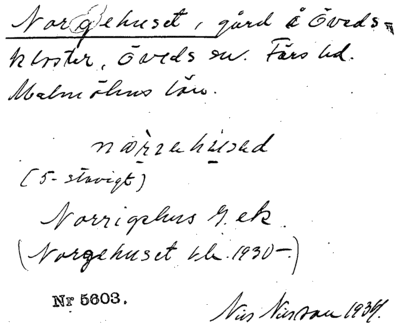 Norgehuset, gård å Öveds-
kloster, Öveds sn. Färs hd.
Malmöhus län.
(5-stavigt)
Norrigehus G. ek.
(Norgehuset bl. 1930-.)
Nr 5603.
Nils Nilsson 1934.